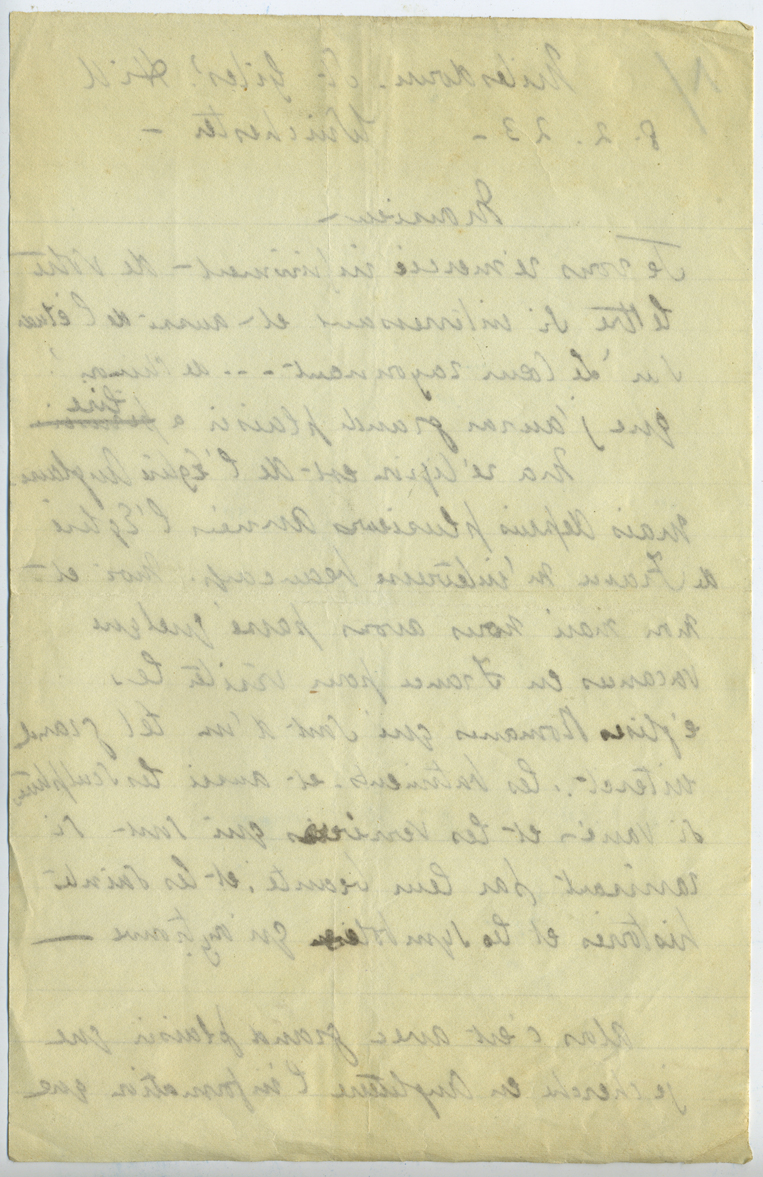 St Giles' Hill
8.2.23 - Winchester -
Monsieur -
Je vous remercie infiniment de votre
lettre si interressant et aussi de l'etude
sur le Coeur rayonnant
que j'aurai grand plaisir a lire
Ma religion est de l'Eglise Anglaise,
Mais depuis plusieurs années l'Eglise
de France m'intéresse beaucoup. Moi et
mon mari nous avons passé quelque
vacances en France pour visiter les
églises Romanes qui sont d'un tel grand
interet, les batiments et aussi les sculptures
si varié et les verrières qui sont si
ravissant par leur beauté, et les Saints
histoires et les symboles qu'on y trouve —
Alas c'est avec grand plaisir que
je cherche en Angleterre l'information que